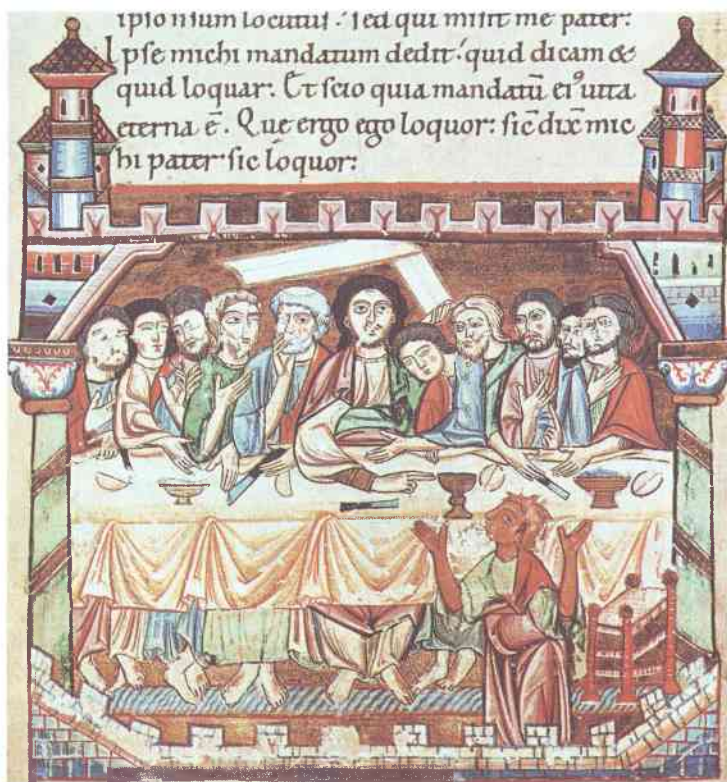 ipso nisum locutus: sed qui misit me pater:
Ipse michi mandatum dedit: quid dicam &
quid loquar. Et scio quia mandatū eiꝰ uita
eterna ē. Que ergo ego loquor: sic dix̄ mic
hi pater sic loquor: